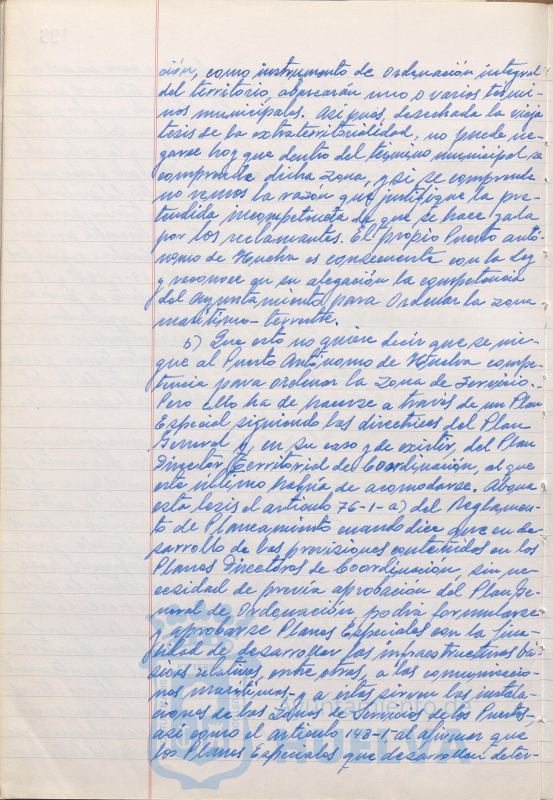 ción, como instrumento de ordenación integral
del territorio, abarcarán uno o varios térmi-
nos municipales. Así pues, desechada la vieja
tesis de la extraterritorialidad, no puede ne-
garse hoy que dentro del término municipal se
comprende dicha zona, y si se comprende
no vemos la razón que justifique la pre-
tendida incompetencia de que se hace gala
por los reclamantes. El propio Puerto autó-
nomo de Huelva es consecuente con la Ley
y reconoce en su alegación la competencia
del Ayuntamiento para Ordenar la zona
marítimo-terrestre.
b) Que esto no quiere decir que se nie-
gue al Puerto Autónomo de Huelva compe-
tencia para ordenar la Zona de Servicio.
Pero ello ha de hacerse a través de un Plan
Especial siguiendo las directrices del Plan
General y, en su caso y de existir, del Plan
Director Territorial de Coordinación, al que
este último habría de acomodarse. Abona
esta tesis el artículo 76-1-a) del Reglamen-
to de Planeamiento cuando dice que en de-
sarrollo de las previsiones contenidas en los
Planes Directores de Coordinación, sin ne-
cesidad de previa aprobación del Plan Ge-
neral de Ordenación podrá formularse
y aprobarse Planes Especiales con la fina-
lidad de desarrollar las infraestructuras bá-
sicas relativas, entre otras, a las comunicacio-
nes marítimas - y a estas sirven las instala-
ciones de las Zonas de Servicios de los Puertos-
así como el artículo 143-1- al afirmar que
los Planes Especiales que desarrollen deter-
Ayuntamiento de
HUELVA